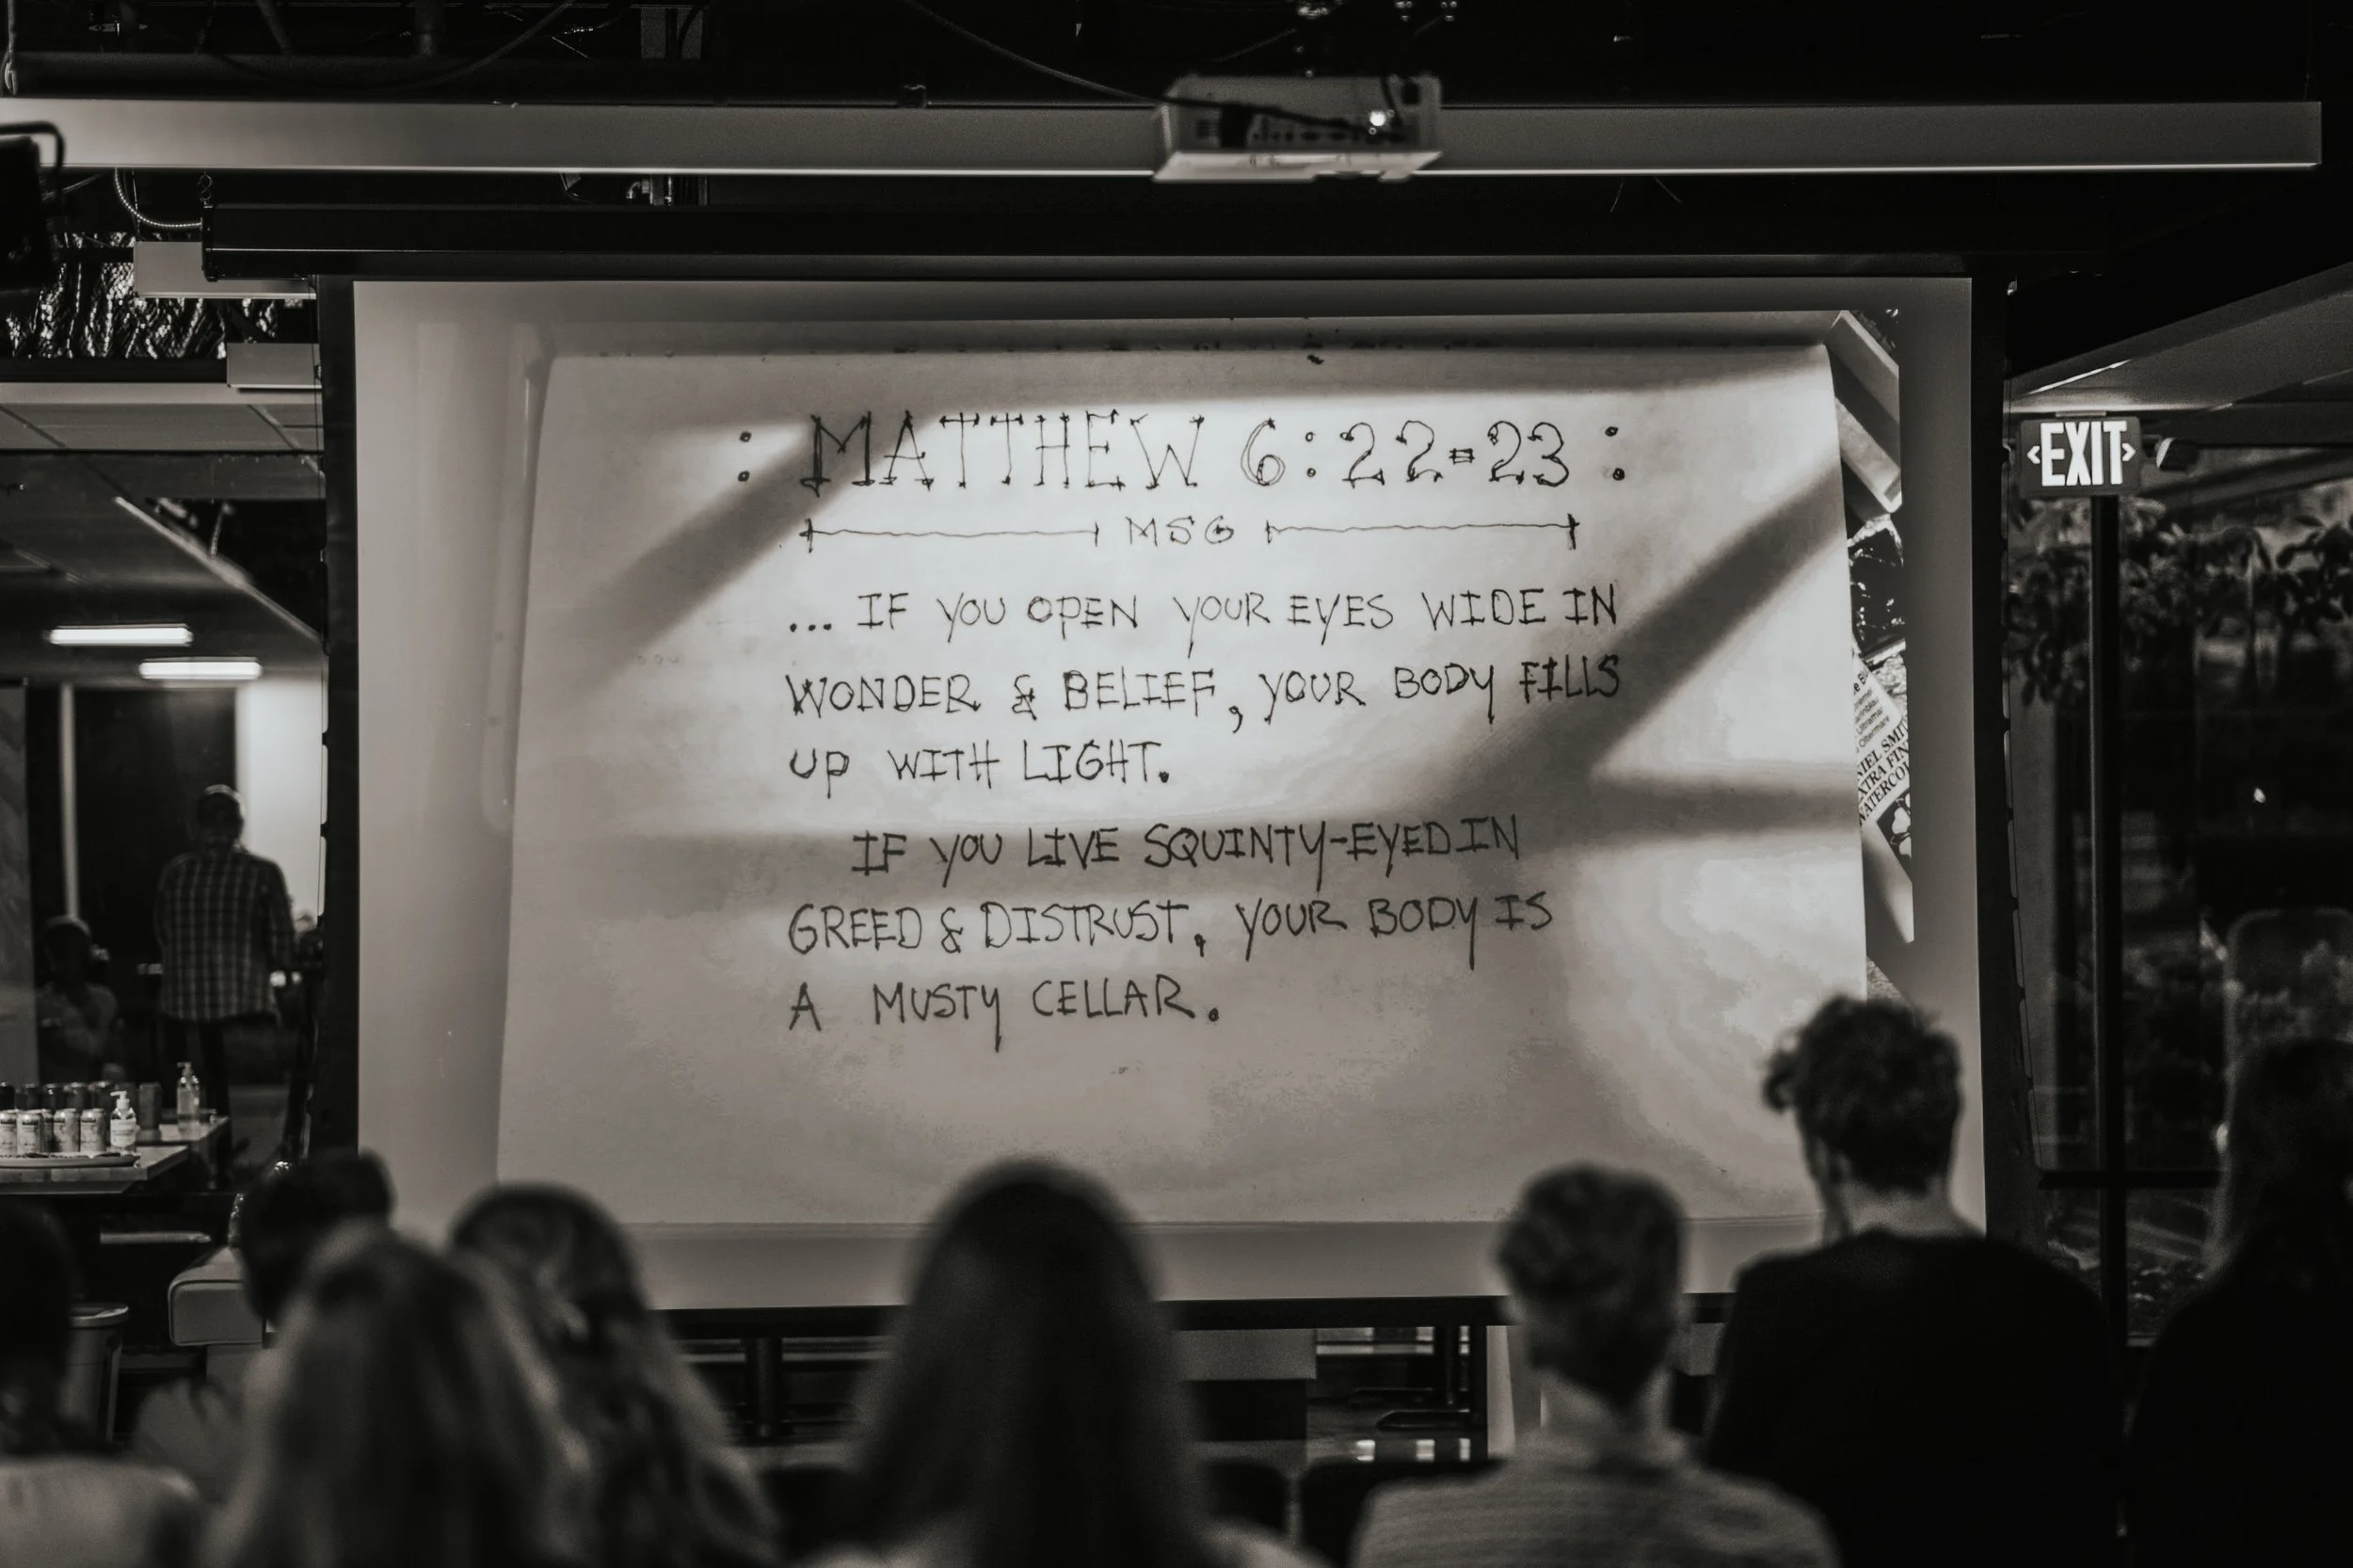 : MATTHEW 6:22-23 :
MSG
... IF YOU OPEN YOUR EYES WIDE IN
WONDER & BELIEF, YOUR BODY FILLS
UP WITH LIGHT.
IF YOU LIVE SQUINTY-EYED IN
GREED & DISTRUST, YOUR BODY IS
A MUSTY CELLAR.
<EXIT>